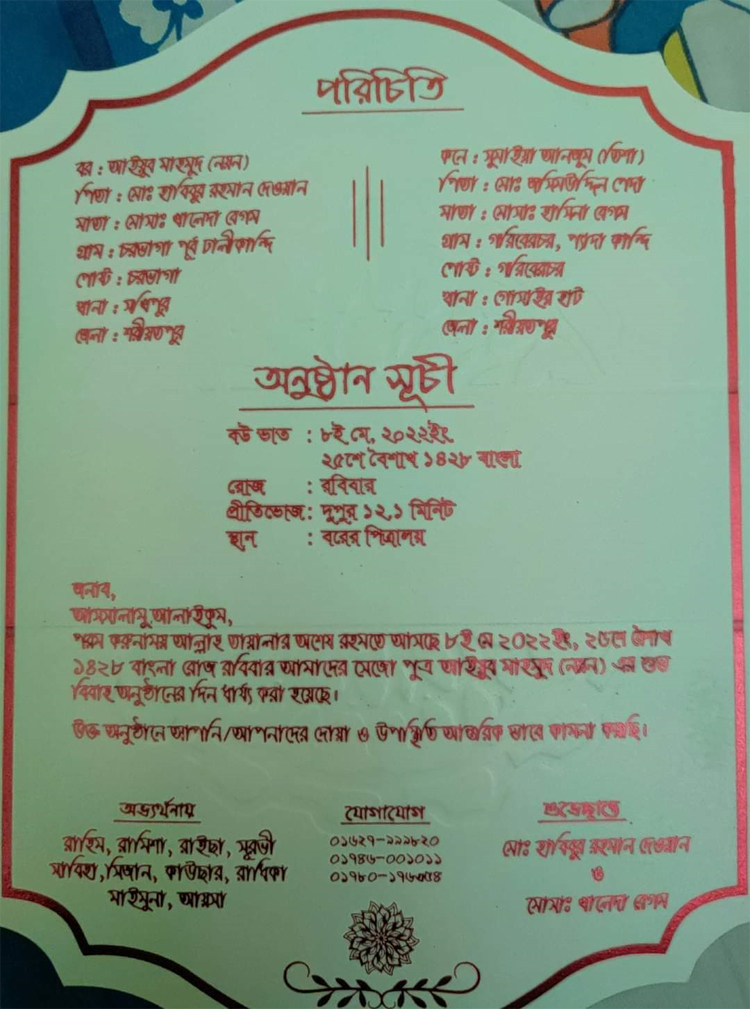 পরিচিতি
বর : আইয়ুব মাহমুদ (নয়ন)
পিতা : মোঃ হাবিবুর রহমান দেওয়ান
মাতা : মোসাঃ খালেদা বেগম
গ্রাম : চরভাগা পূর্ব ঢালীকান্দি
পোস্ট : চরভাগা
থানা : সখিপুর
জেলা : শরীয়তপুর
কনে : সুমাইয়া আনজুম (তিশা)
পিতা : মোঃ জসিমউদ্দিন পেদা
মাতা : মোসাঃ হাসিনা বেগম
গ্রাম : গরিবেরচর, প্যাদা কান্দি
পোস্ট : গরিবেরচর
থানা : গোসাইর হাট
জেলা : শরীয়তপুর
অনুষ্ঠান সূচী
বউ ভাত : ৮ই মে, ২০২২ইং
২৫শে বৈশাখ ১৪২৮ বাংলা
রোজ : রবিবার
প্রীতিভোজ: দুপুর ১২.১ মিনিট
স্থান : বরের পিত্রালয়
জনাব,
আসসালামু আলাইকুম,
পরম করুনাময় আল্লাহ তায়ালার অশেষ রহমতে আসছে ৮ই মে 2022ইং, ২৫শে বৈশাখ
১৪২৮ বাংলা রোজ রবিবার আমাদের মেজো পুত্র আইয়ুব মাহমুদ (নয়ন) এর শুভ
বিবাহ অনুষ্ঠানের দিন ধার্য্য করা হয়েছে।
উক্ত অনুষ্ঠানে আপনি/আপনাদের দোয়া ও উপস্থিতি আন্তরিক ভাবে কামনা করছি।
অভ্যর্থনায়
রাহিম, রামিশা, রাইছা, সুরভী
সাবিহা, সিজান, কাউছার, রাধিকা
মাইমুনা, আয়সা
যোগাযোগ
০১৬২৭-২২২৮২০
০১৭৪৬-০০১০১১
শুভেচ্ছান্তে
মোঃ হাবিবুর রহমান দেওয়ান
ও
মোসাঃ খালেদা বেগম